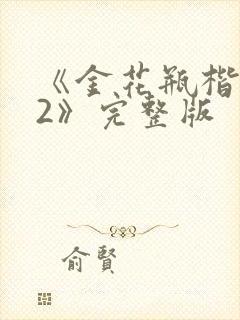 《金花瓶楷
2》完整版
俞賢